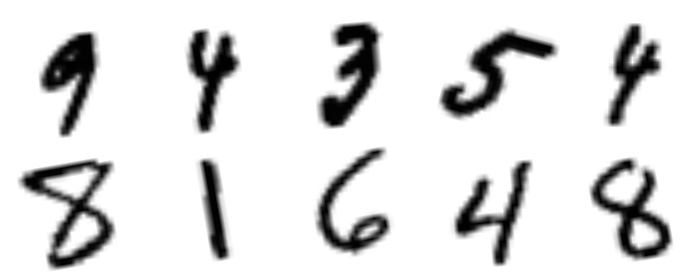 9 4 3 5 4
8 1 6 4 8